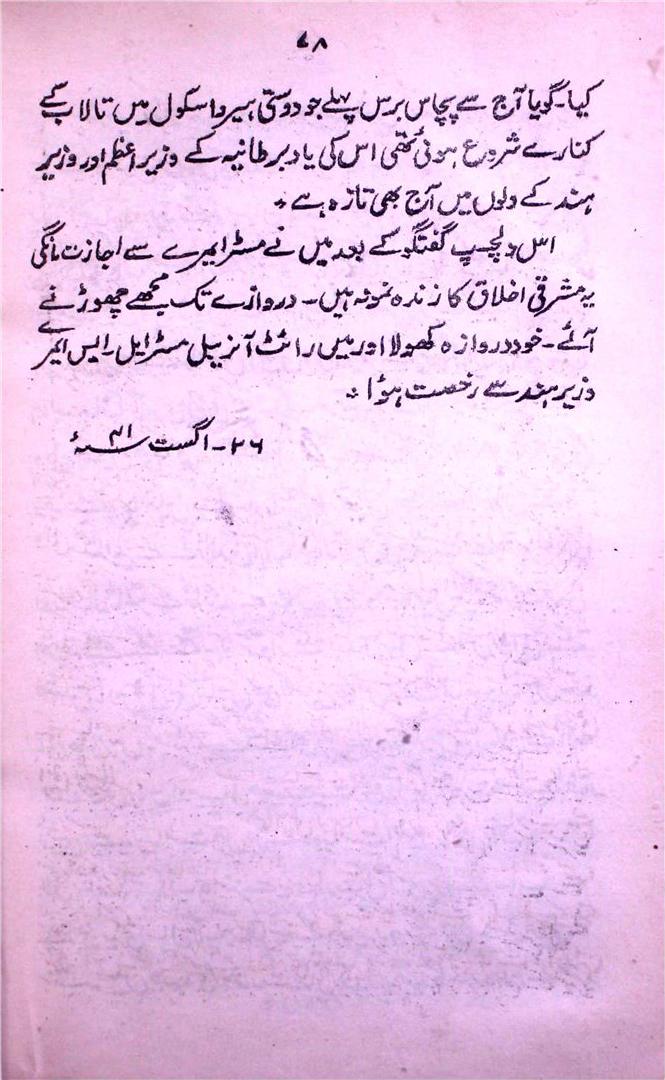 ۷۸
کیا۔ گویا آج سے پچاس برس پہلے جو دوستی ہیرو اسکول میں تالاب کے
کنارے شروع ہوئی تھی اس کی یاد برطانیہ کے وزیر اعظم اور وزیر
ہند کے دلوں میں آج بھی تازہ ہے ۔
اس دلچسپ گفتگو کے بعد میں نے مسٹر ایمرے سے اجازت مانگی
یہ مشرقی اخلاق کا زندہ نمونہ ہیں۔ دروازے تک مجھے چھوڑنے
آئے۔ خود دروازہ کھولا اور میں رائٹ آنریبل مسٹر ایل۔ ایس ایمرے
وزیر ہند سے رخصت ہؤا ۔
۲۶۔ اگست ۴۱ سنہء